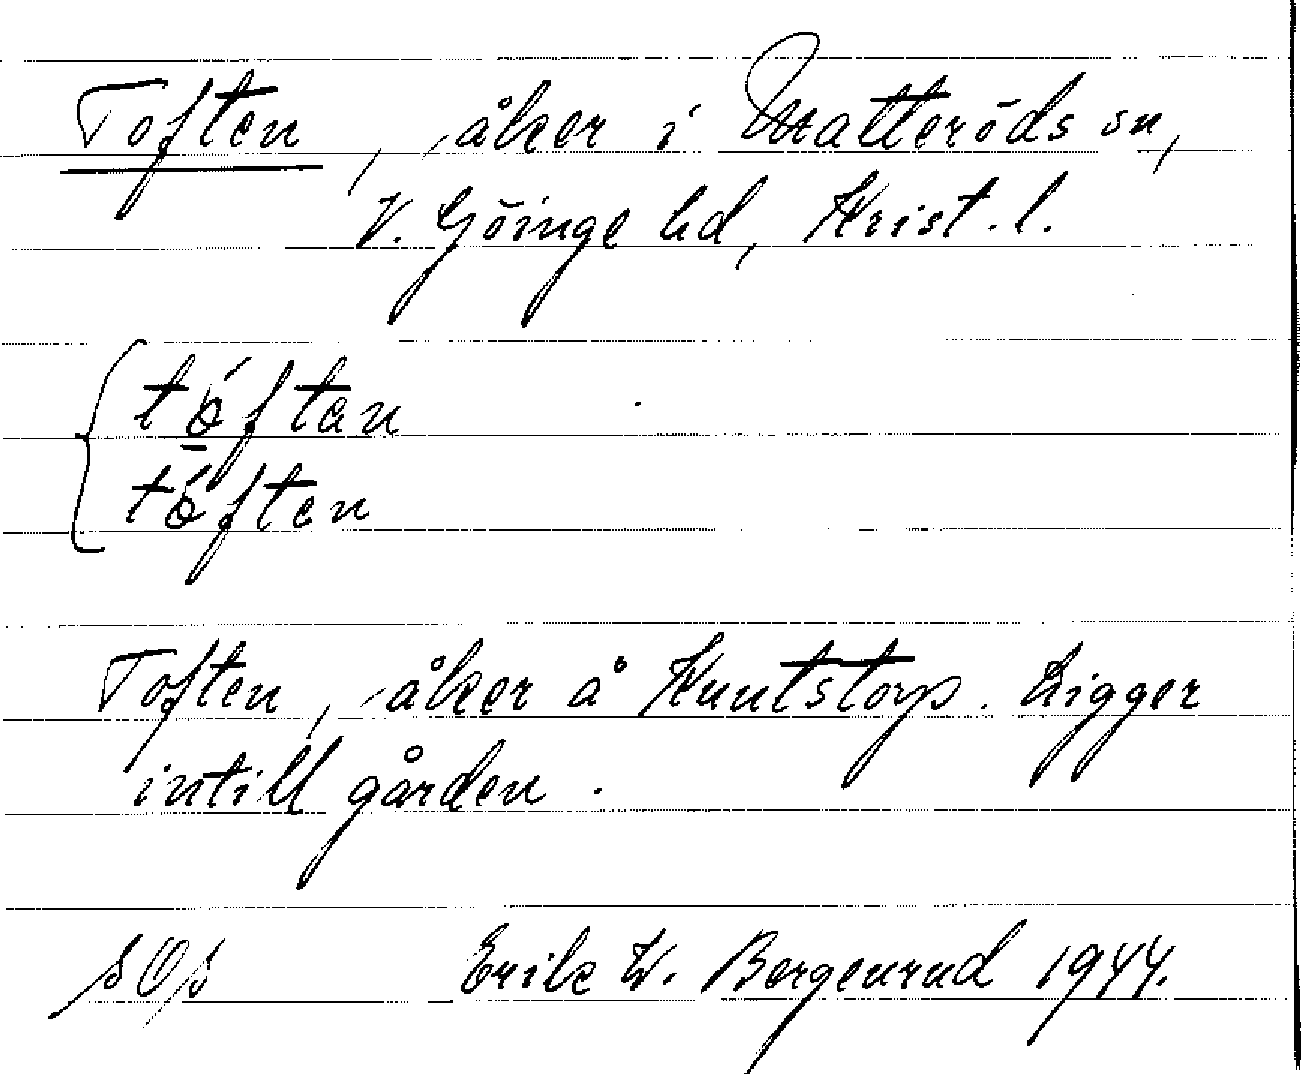 Toften, åker i Matteröds sn,
V. Göinge hd, Krist. l.
tóftan
tóften
Toften, åker å Kuntstorp. Ligger
intill gården.
sOs Erik W. Bergenrud 1944.